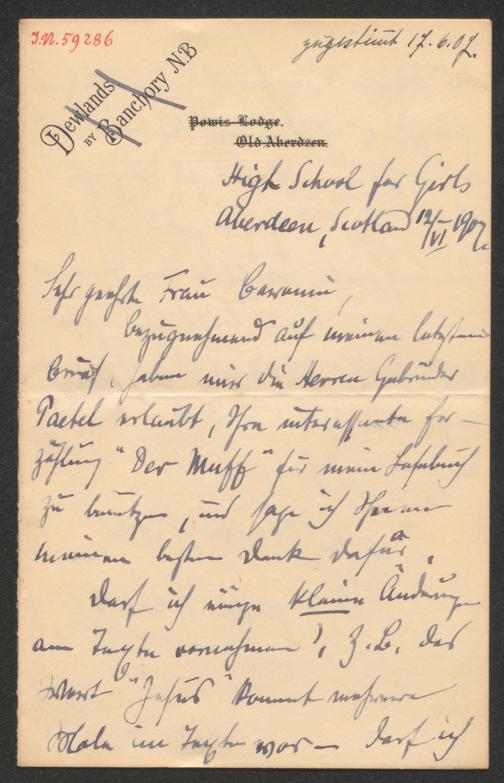 I.N. 59286
zugestimmt 17.6.07.
Dewlands
BY Banchory N.B
Powis Lodge.
Old Aberdeen.
High School for Girls
Aberdeen, Scotland 12/VI 1907.
Sehr geehrte Frau Baronin,
Bezugnehmend auf meinen letzten
Brief, haben mir die Herren Gebrüder
Paetel erlaubt, Ihre interessante Er-
zählung "Der Muff" für mein Lesebuch
zu benutzen, und sage ich Ihnen
meinen besten Dank dafür.
Darf ich einige kleine Änderungen
am Texte vornehmen?, z.B. das
Wort "Jesus" kommt mehrere
Male im Texte vor – darf ich